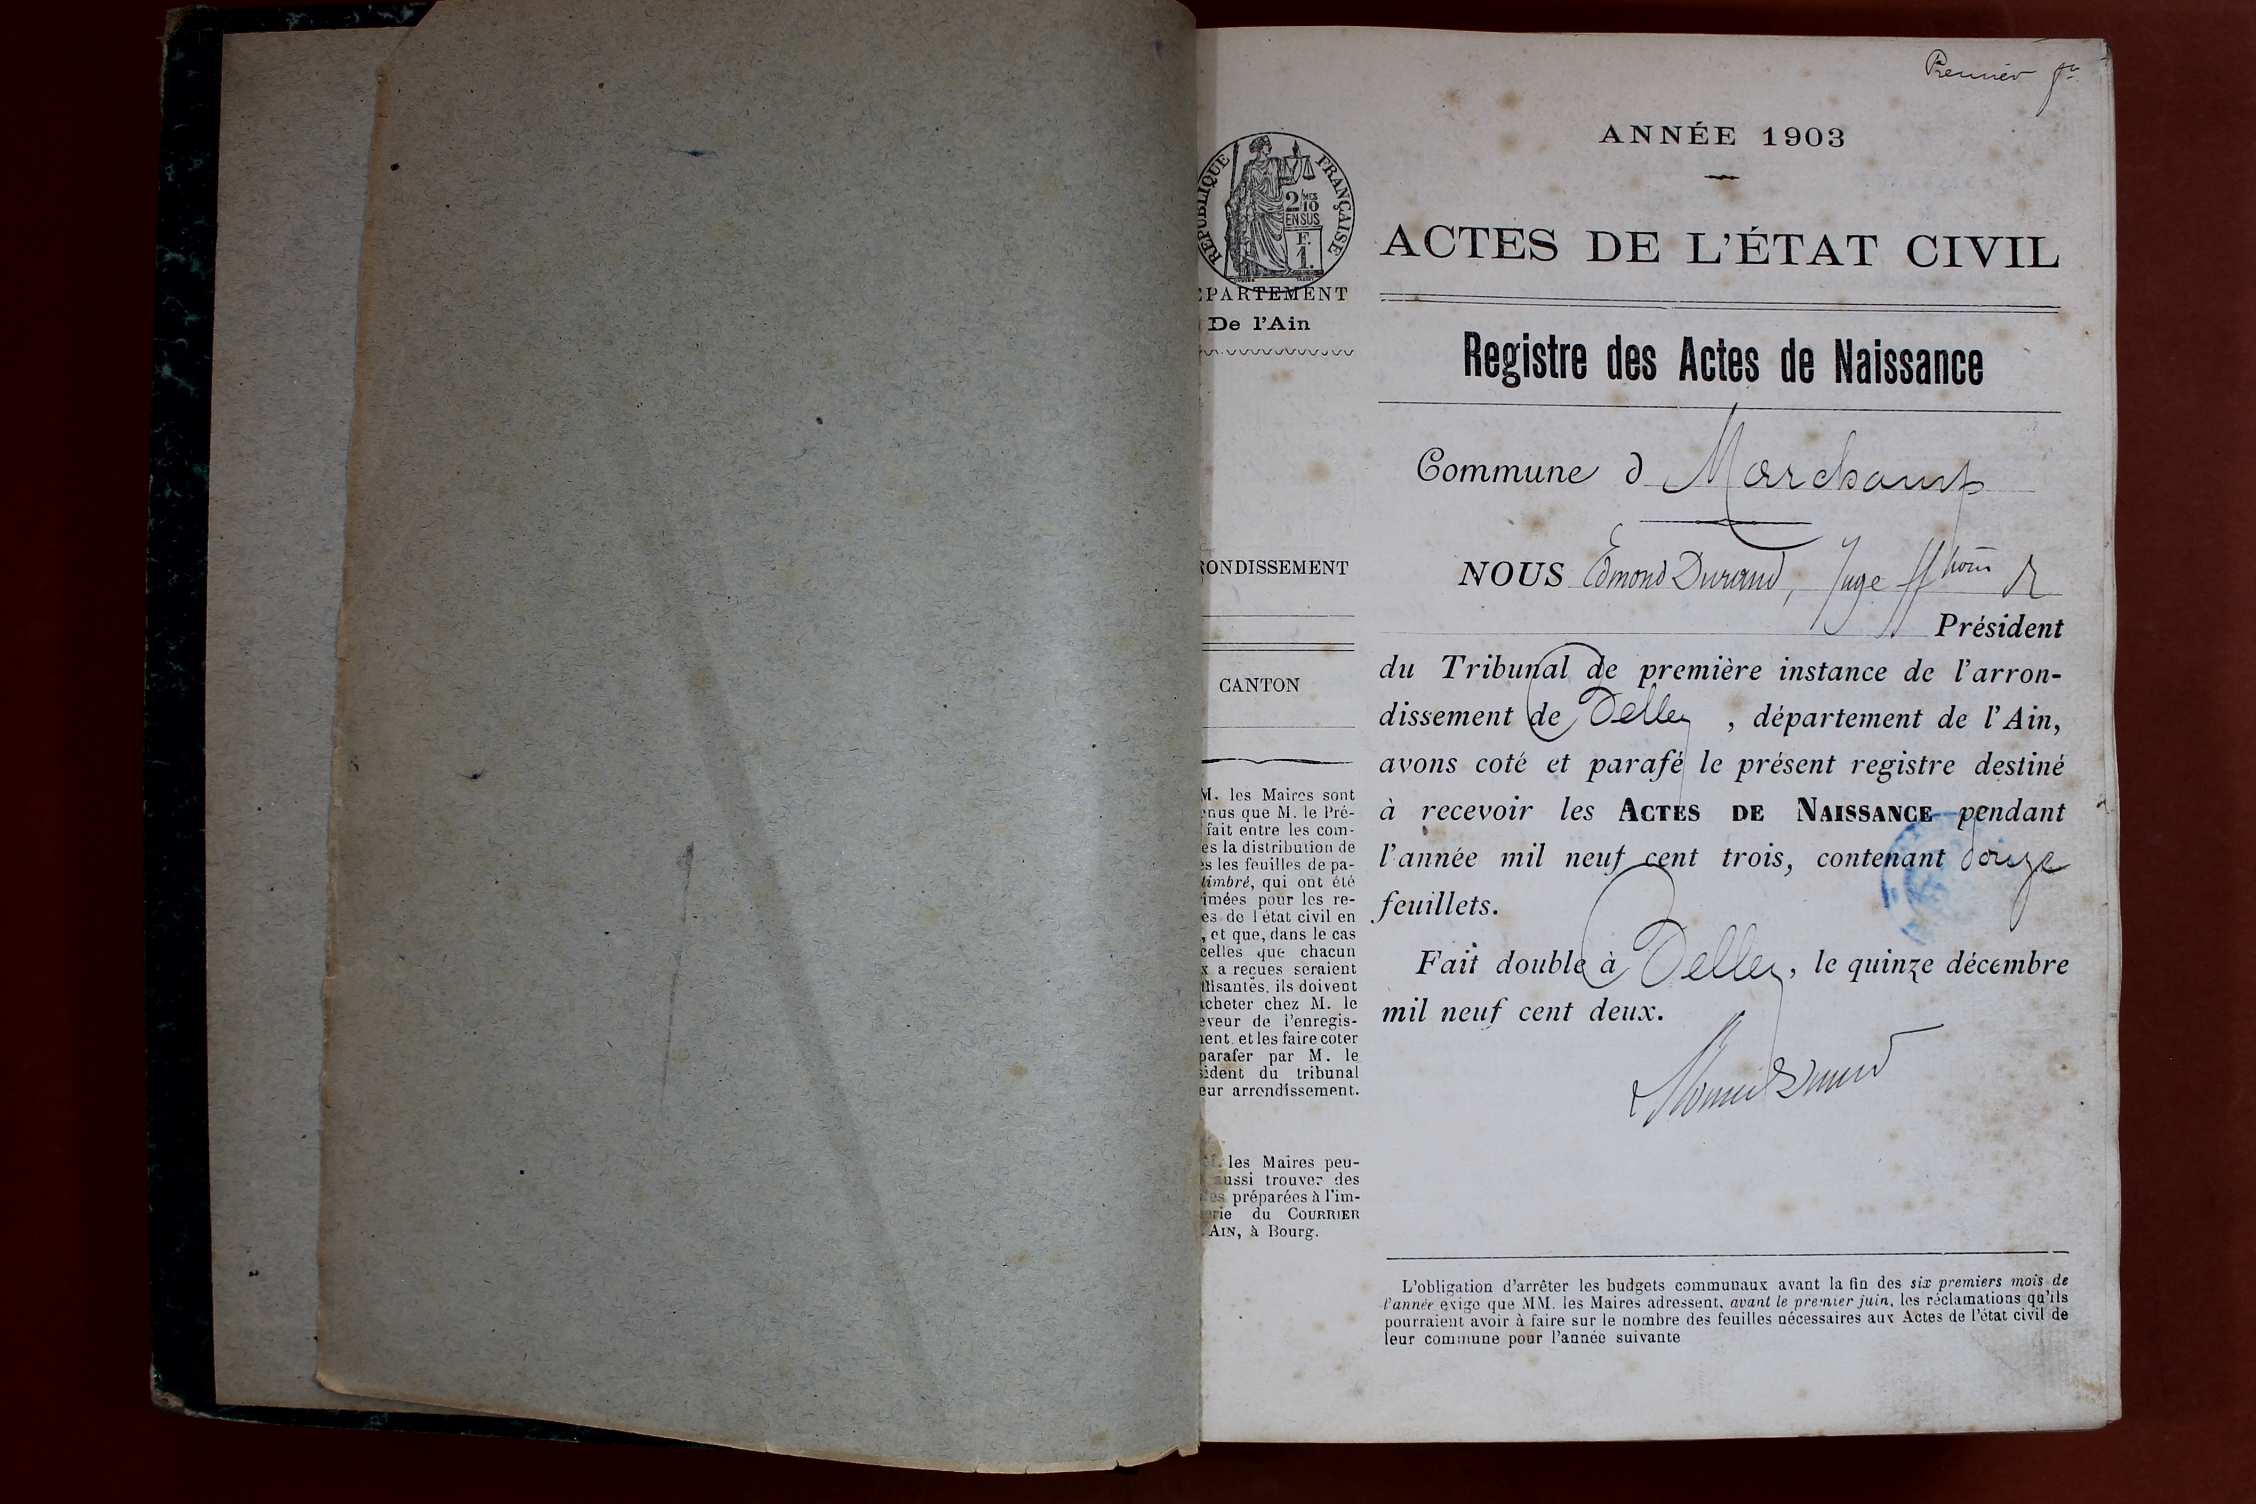 Premier
ANNÉE 1903
RÉPUBLIQUE FRANÇAISE
2/10 MES
EN SUS
F.
1.
ACTES DE L'ÉTAT CIVIL
ÉPARTEMENT
De l'Ain
Registre des Actes de Naissance
Commune d Marchamp
NOUS Edmond Durand, Juge ff hons de
Président
du Tribunal de première instance de l'arron-
dissement de Belley, département de l'Ain,
avons coté et parafé le présent registre destiné
à recevoir les ACTES DE NAISSANCE pendant
l'année mil neuf cent trois, contenant douze
feuillets.
Fait double à Belley, le quinze décembre
mil neuf cent deux.
RONDISSEMENT
CANTON
M. les Maires sont
enus que M. le Pré-
fait entre les com-
es la distribution de
es les feuilles de pa-
timbré, qui ont été
imées pour les re-
es de l'état civil en
, et que, dans le cas
celles que chacun
x a reçues seraient
ffisantes, ils doivent
acheter chez M. le
eveur de l'enregis-
ent, et les faire coter
parafer par M. le
sident du tribunal
eur arrondissement.
M. les Maires peu-
aussi trouver des
es préparées à l'im-
erie du COURRIER
AIN, à Bourg.
L'obligation d'arrêter les budgets communaux avant la fin des six premiers mois de
l'année exige que MM. les Maires adressent, avant le premier juin, les réclamations qu'ils
pourraient avoir à faire sur le nombre des feuilles nécessaires aux Actes de l'état civil de
leur commune pour l'année suivante